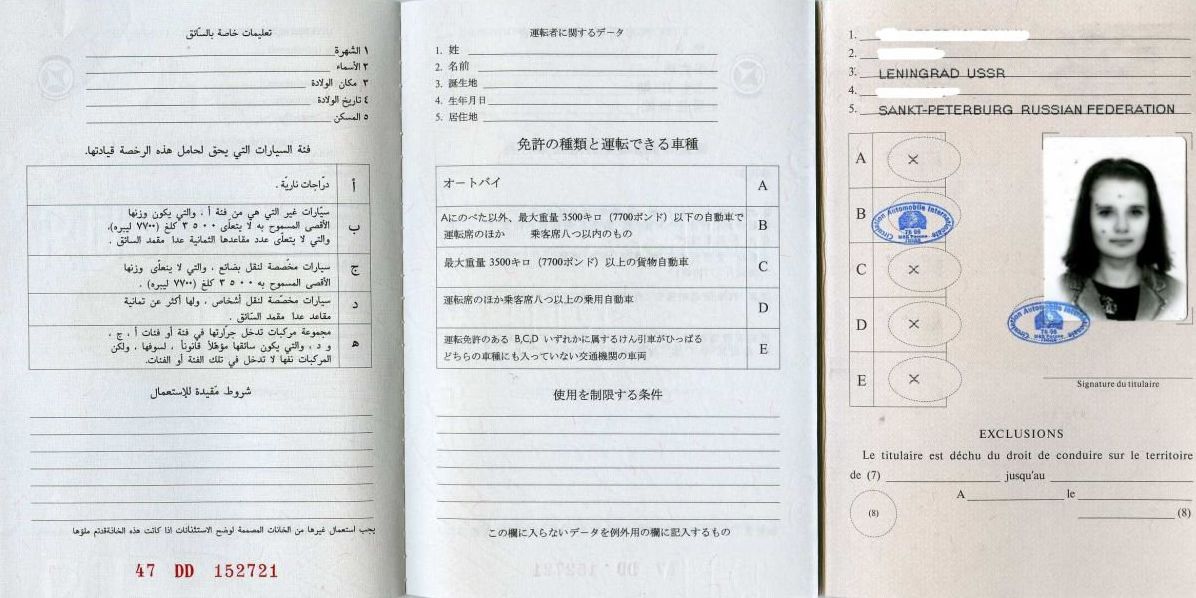 تعليمات خاصة بالسّائق
١ الشهرة
٢ الأسماء
٣ مكان الولادة
٤ تاريخ الولادة
٥ المسكن
فئة السيارات التي يحق لحامل هذه الرخصة قيادتها.
أ
درّاجات ناريّة .
ب
سيّارات غير التي هي من فئة أ ، والتي يكون وزنها
الأقصى المسموح به لا يتعلّى ٣٥٠٠ كلغ (٧٧٠٠ ليبره).
والتي لا يتعلّى عدد مقاعدها الثمانية عدا مقمد السائق .
ج
سيارات مخصّصة لنقل بضائع ، والتي لا يتعدّى وزنها
الأقصى المسموح به ٣٥٠٠ كلغ (٧٧٠٠ ليبره) .
د
سيارات مخصّصة لنقل أشخاص ، ولها أكثر عن ثمانية
مقاعد عدا مقمد السّائق .
ه
مجموعة مركبات تدخل جرّارتها في فئة أو فئات أ ، ج ،
و د ، والتي يكون سائقها مؤهلاً قانوناً ، لسوقها ، ولكن
المركبات نفها لا تدخل في تلك الفئة أو الفئات.
شروط مّقيدة للإستعمال
يجب استعمال غيرها من الخانات المصممة لوضح الاستثنائات اذا كانت هذه الخانةقدتم ملؤها
47 DD 152721
運転者に関するデータ
1. 姓
2. 名前
3. 誕生地
4. 生年月日
5. 居住地
免許の種類と運転できる車種
オートバイ
A
Aにのべた以外、最大重量 3500キロ（7700ポンド）以下の自動車で
運転席のほか 乗客席八つ以内のもの
B
最大重量 3500キロ（7700ポンド）以上の貨物自動車
C
運転席のほか乗客席八つ以上の乗用自動車
D
運転免許のある B,C,D いずれかに属するけん引車がひっぱる
どちらの車種にも入っていない交通機関の車両
E
使用を制限する条件
この欄に入らないデータを例外用の欄に記入するもの
1.
2.
3. LENINGRAD USSR
4.
5. SANKT-PETERBURG RUSSIAN FEDERATION
A ×
B
Circulation Automobile Internationale
C ×
D ×
E ×
Circulation Automobile Internationale
Signature du titulaire
EXCLUSIONS
Le titulaire est déchu du droit de conduire sur le territoire
de (7) jusqu'au
A le
(8)
(8)